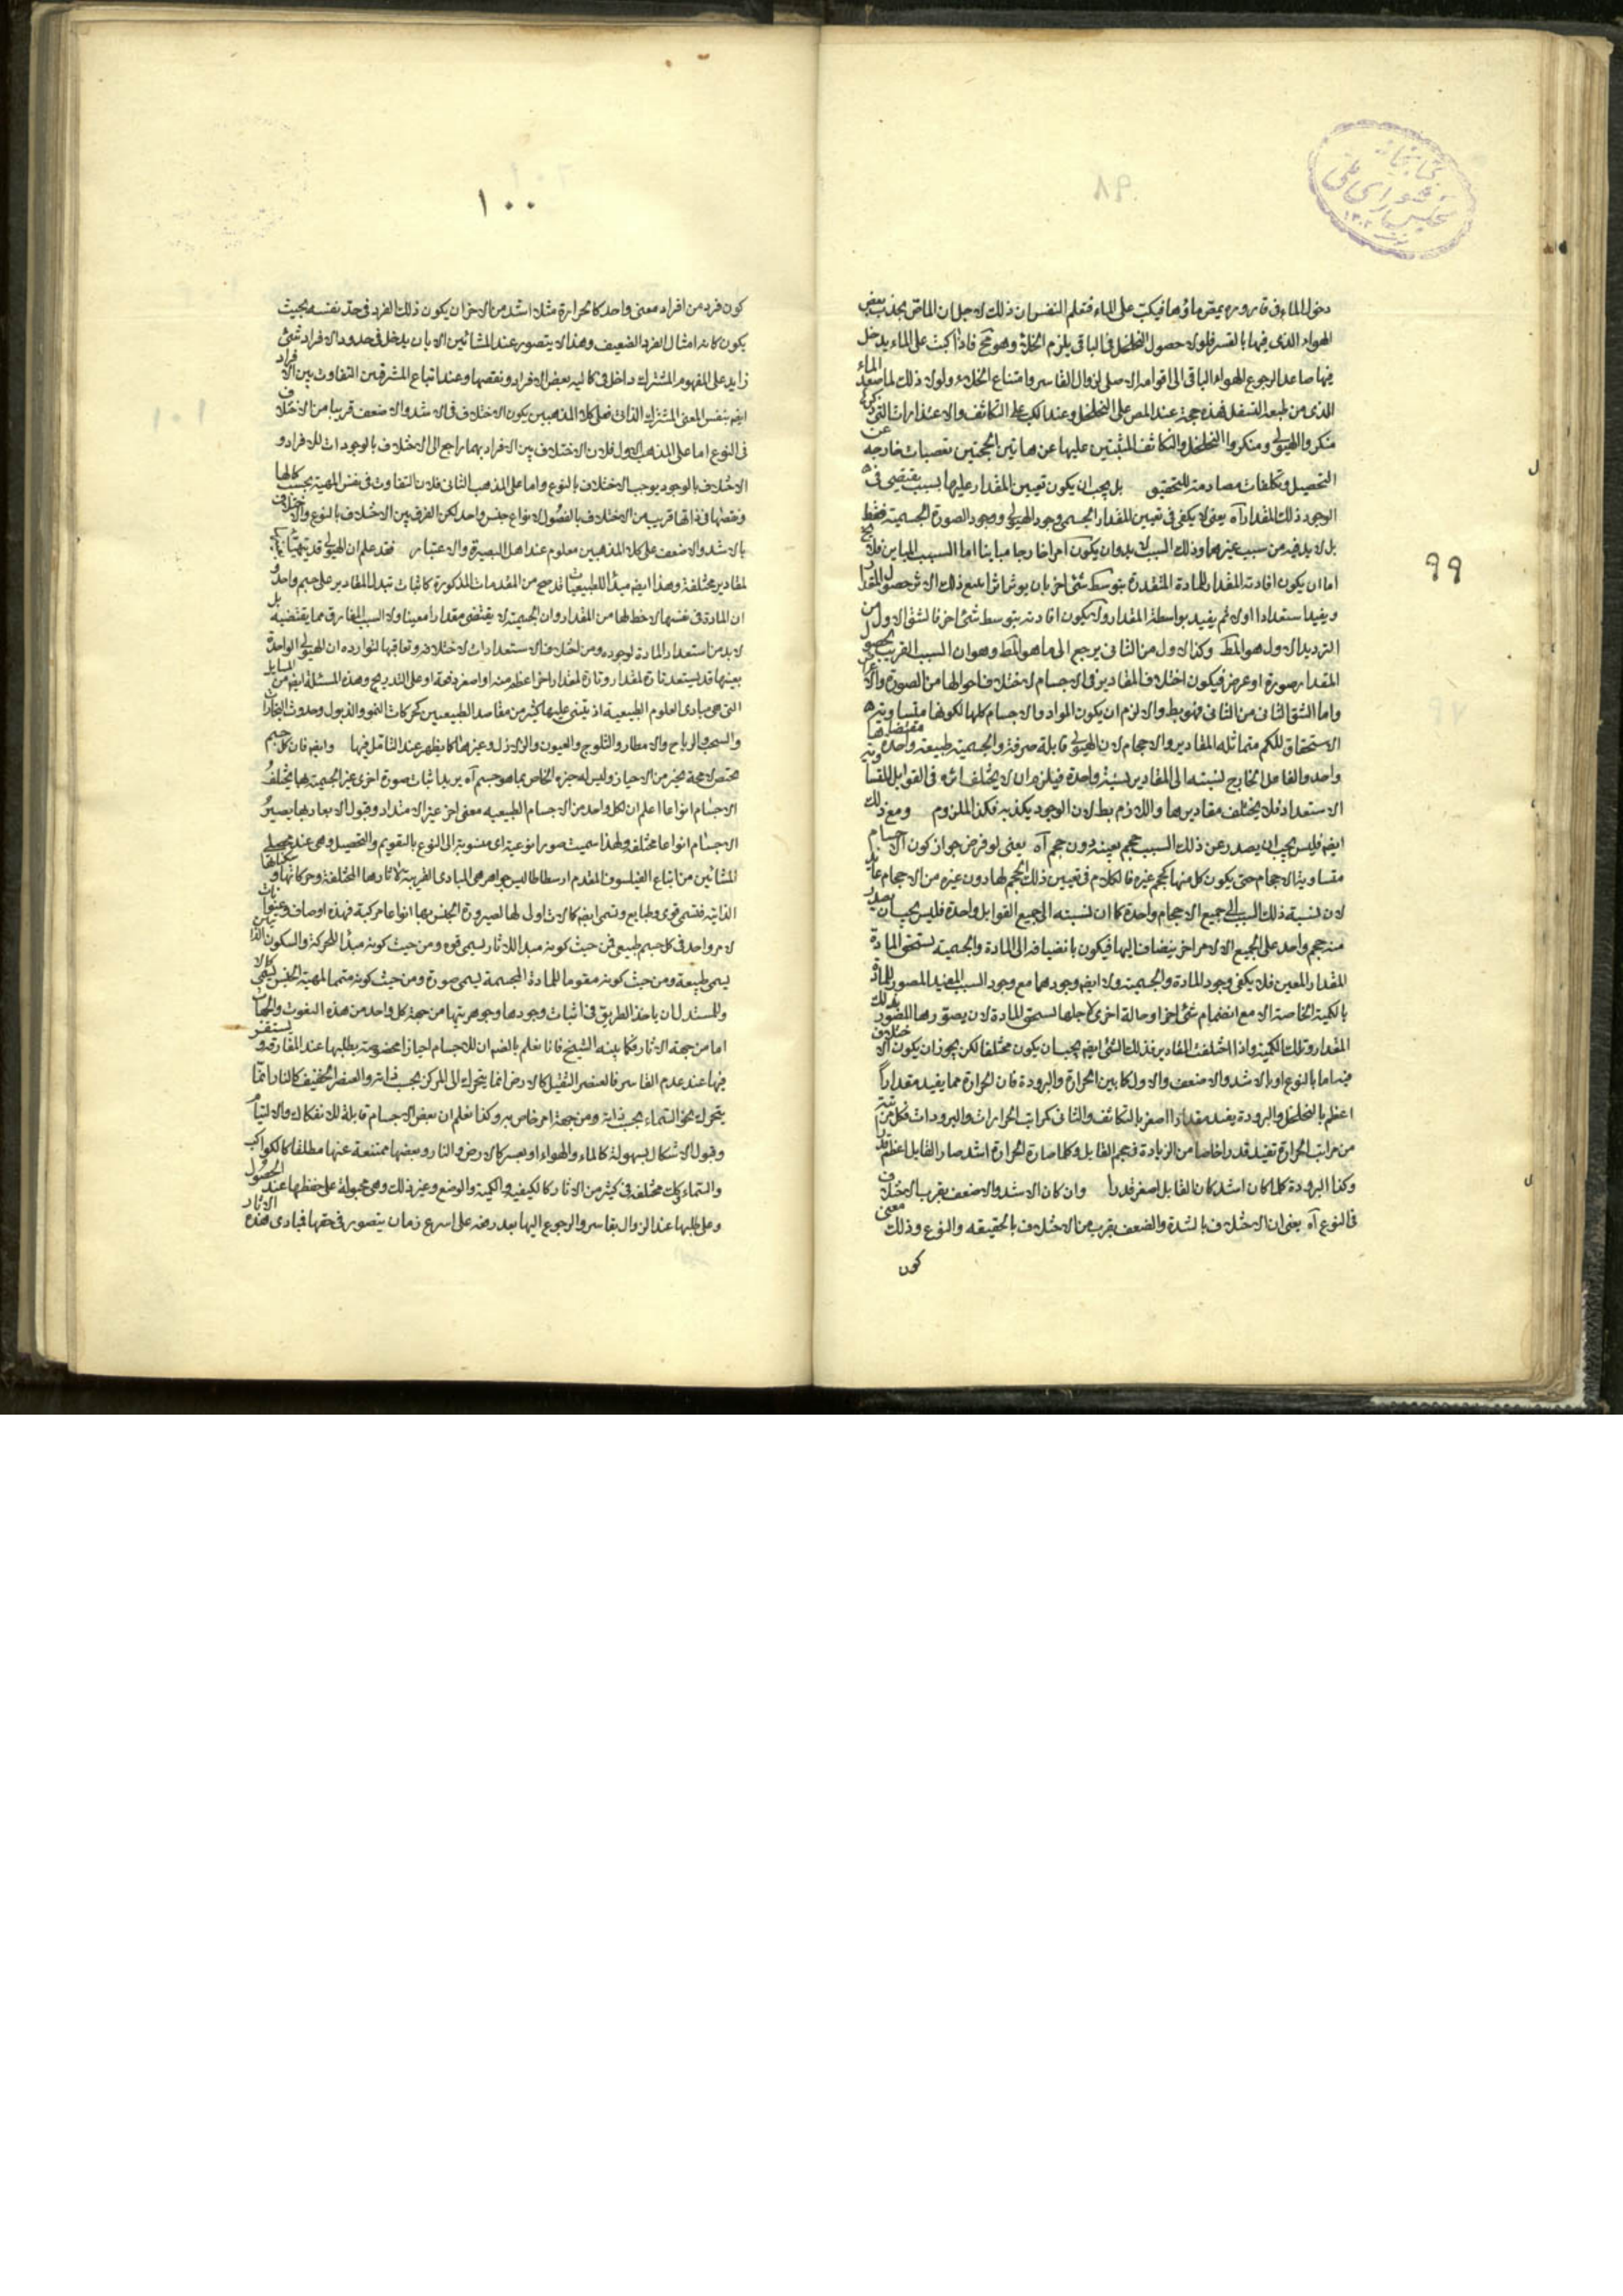 كتابخانه
مجلس شورای ملی
٩٩
دخول الماء فى قارورة يمص ماؤها فيكب على الماء فتعلم النفس ان ذلك لاجل ان الماص يجذب بعض
الهواء الذى فيها بالقسر فلولا حصول التخلخل فى الباقى يلزم الخلاء وهو مح فاذا اكبت على الماء يدخل
فيها صاعدا لرجوع الهواء الباقى الى قوامه الاصلى لزوال القاسر وامتناع الخلاء ولولا ذلك لما صعد الماء
الذى من طبعه التسفل فهذه حجة عند المص على التخلخل وعند الكب على التكاثف والاعتذارات التى ذكره
منكروا الهيولى ومنكروا التخلخل والتكاثف المثبتين عليها عن هاتين الحجتين تعصبات خارجه عن
التحصيل وتكلفات مصادمة للتحقيق بل يجب ان يكون تعيين المقدار عليها بسبب يقتضى فى
الوجود ذلك المقدار آه يعنى لا يكفى فى تعيين المقدار الجسمى وجود الهيولى ووجود الصورة الجسمية فقط
بل لا بد فيه من سبب غيرهما وذلك السبب لا بد وان يكون امرا خارجا مباينا اما السبب المباين فلا يخ
اما ان يكون افادته المقدار للمادة المتقدرة بتوسط شئ اخر بان يوثر اثرا يتبع ذلك الاثر حصول المقدار
ويفيد استعدادا اولا ثم يفيد بواسطة المقدار ولا يكون افادته بتوسط شئ اخر فالشق الاول من
الترديد الاول هو المط وكذا الاول من الثانى يرجع الى ما هو المط وهو ان السبب القريب لحصول
المقدار صورة او عرض فيكون اختلاف المقادير فى الاجسام لاختلاف احوالها من الصورة والاعراض
واما الشق الثانى من الثانى فهو بط والا لزم ان يكون المواد والاجسام كلها لكونها متساوية
الاستحقاق للكم متماثلة المقادير والاحجام لان الهيولى قابلة صرفة والجسمية طبيعة واحدة مقتضاها
واحد والفاعل الخارج نسبته الى المقادير نسبة واحدة فيلزم ان لا يختلف اثره فى القوابل المتساوية
الاستعداد فلا يختلف مقاديرها واللازم بط لان الوجود يكذبه فكذا الملزوم ومع ذلك
ايضا فليس يجب ان يصدر عن ذلك السبب حجم بعينه دون حجم آه يعنى لو فرض جواز كون الاجسام
متساوية الاحجام حتى يكون كل منها كحجم غيره فالكلام فى تعيين ذلك الحجم لها دون غيره من الاحجام عائد
لان نسبة ذلك السبب الى جميع الاحجام واحدة كما ان نسبته الى جميع القوابل واحدة فليس يجب ان يصدر
منه حجم واحد على الجميع الا لامر اخر ينضاف اليها فيكون بانضيافه الى المادة والجسمية يستحق المادة
المقدار المعين فلا يكفى وجود المادة والجسمية ولا ايضا وجودهما مع وجود السبب المفيد المصور للمادة
بالكمية الخاصة الا مع انضمام شئ اخر او حالة اخرى لاجلها يستحق المادة لان يصورها المصور بذلك
المقدار وتلك الكمية واذا اختلفت المقادير فذلك الشئ ايضا يجب ان يكون مختلفا لكن يجوز ان يكون الاختلاف
فيه اما بالنوع او بالاشد والاضعف والاول كما بين الحرارة والبرودة فان الحرارة مما يفيد مقداراً
اعظم بالتخلخل والبرودة يفيد مقدارا اصغر بالتكاثف والثانى كمراتب الحرارات والبرودات فكل مرتبة
من مراتب الحرارة تفيد قدرا خاصا من الزيادة فى حجم القابل وكلما صارة الحرارة اشد صار القابل اعظم قدرا
وكذا البرودة كلما كان اشد كان القابل اصغر قدرا وان كان الاشد والاضعف يقرب الاختلاف
فى النوع آه يعنى ان الاختلاف بالشدة والضعف يقرب من الاختلاف بالحقيقه والنوع وذلك معنى
كون
١٠٠
كون فرد من افراد معنى واحد كالحرارة مثلا اشد من الاخر ان يكون ذلك الفرد فى حد نفسه بحيث
يكون كانه امثال الفرد الضعيف وهذا لا يتصور عند المشائين الا بان يدخل فى حدود الافراد شئ
زايد على المفهوم المشترك داخل فى كمالية بعض الافراد ونقصها وعند اتباع المشرقيين التفاوت بين الافراد
ايضا بنفس المعنى المشترك الذاتى فعلى كلا المذهبين يكون الاختلاف فى الاشد والاضعف قريبا من الاختلاف
فى النوع اما على المذهب الاول فلان الاختلاف بين الافراد بهما راجع الى الاختلاف بالوجودات للافراد و
الاختلاف بالوجود يوجب الاختلاف بالنوع واما على المذهب الثانى فلان التفاوت فى نفس المهية بحسب كمالها
ونقصها فى ذاتها قريب من الاختلاف بالفصول لانواع جنس واحد لكن الفرق بين الاختلاف بالنوع والاختلاف
بالاشد والاضعف على كلا المذهبين معلوم عند اهل البصيرة والاعتبار فقد علم ان الهيولى قد يتهيأ
لمقادير مختلفة وهذا ايضا مبدأ للطبيعيات قد صح من المقدمات المذكورة كاثبات تبدل المقادير على جسم واحد و
ان المادة فى نفسها لا حظ لها من المقدار وان الجسمية لا يقتضى مقدارا معينا ولا السبب المفارق مما يقتضيه بل
لا بد من استعداد المادة لوجوده ومن اختلاف الاستعدادات لاختلافه وتعاقبها لتوارده ان الهيولى الواحدة
بعينها قد يستعد تارة لمقدار وتارة لمقدار اخر اعظم منه او اصغر دفعة او على التدريج وهذه المسئلة ايضا من المسايل
التى هى مبادى العلوم الطبيعية اذ يبتنى عليها كثير من مقاصد الطبيعيين كحركات النمو والذبول وحدوث البخارات
والسحب والرياح والامطار والثلوج والعيون والزلازل وغيرها كما يظهر عند التامل فيها وايضا فان كل جسم
يختص لا محة بحيز من الاحياز وليس له حيزه الخاص بما هو جسم آه يريد اثبات صورة اخرى غير الجسمية بها يختلف
الاجسام انواعا اعلم ان لكل واحد من الاجسام الطبيعيه معنى اخر غير الامتداد وقبول الابعاد بها يصير
الاجسام انواعا مختلفة ولهذا سميت صورا نوعية اى منسوبة الى النوع بالتقويم والتحصيل وهى عند محصلى
المشائين من اتباع الفيلسوف المقدم ارسطاطاليس جواهر هى المبادى القريبة لاثارها المختلفة وحركاتها وسكناتها
الذاتية فتسمى قوى وطبايع وتسمى ايضا كمالات اول لها لصيرورة الجنس بها انواعا مركبة فهذه اوصاف وعنوانات
لامر واحد فى كل جسم طبيعى فمن حيث كونه مبدا للاثار يسمى قوه ومن حيث كونه مبدأ للحركة والسكون الذاتيين
يسمى طبيعة ومن حيث كونه مقوما للمادة المجسمة يسمى صورة ومن حيث كونه متمما لمهية الجنس يسمى كمالا
وللمستدل ان ياخذ الطريق فى اثبات وجودها وجوهريتها من جهة كل واحد من هذه النعوت والجهات
اما من جهة الاثار فكما بينه الشيخ فانا نعلم بالضرورة ان للاجسام احيازا مخصوصة يطلبها عند المفارقة و يستقر
فيها عند عدم القاسر فالعنصر الثقيل كالارض انما يتحرك الى المركز بحسب ذاته والعنصر الخفيف كالنار انما
يتحرك نحو السماء بحسب ذاته ومن جهة امر خاص به وكذا نعلم ان بعض الاجسام قابلة للانفكاك والالتيام
وقبول الاشكال بسهولة كالماء والهواء او بعسر كالارض والنار وبعضها ممتنعة عنها مطلقا كالكواكب
والسماء وكذلك مختلفه فى كثير من الاثار كالكيفيه والكمية والوضع وغير ذلك وهى مجبولة على حفظها عند الحصول
وعلى طلبها عند الزوال بقاسر والرجوع اليها بعد رفعه على اسرع زمان يتصور فى حقها فمبادى هذه الاثار